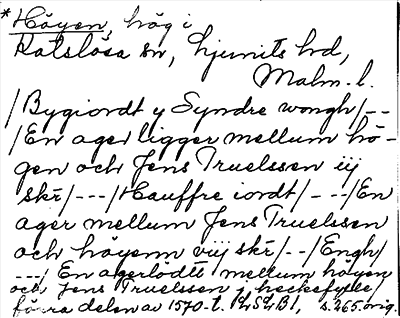 * Höyen, hög i
Katslösa sn, Ljunits hd,
Malm. l.
/Bygiordt y Syndre wongh/--
/En ager ligger mellum hö-
gen och Jens Truelssen iij
skr/---/Hauffre iordt/---/En
ager mellum Jens Truelssen
och höyenn viij skr/--/Engh/
---/ En agerlödtt mellum höyen
och Jens Truelssen j heckefylle/
förra delen av 1570-t. s. 265. orig.